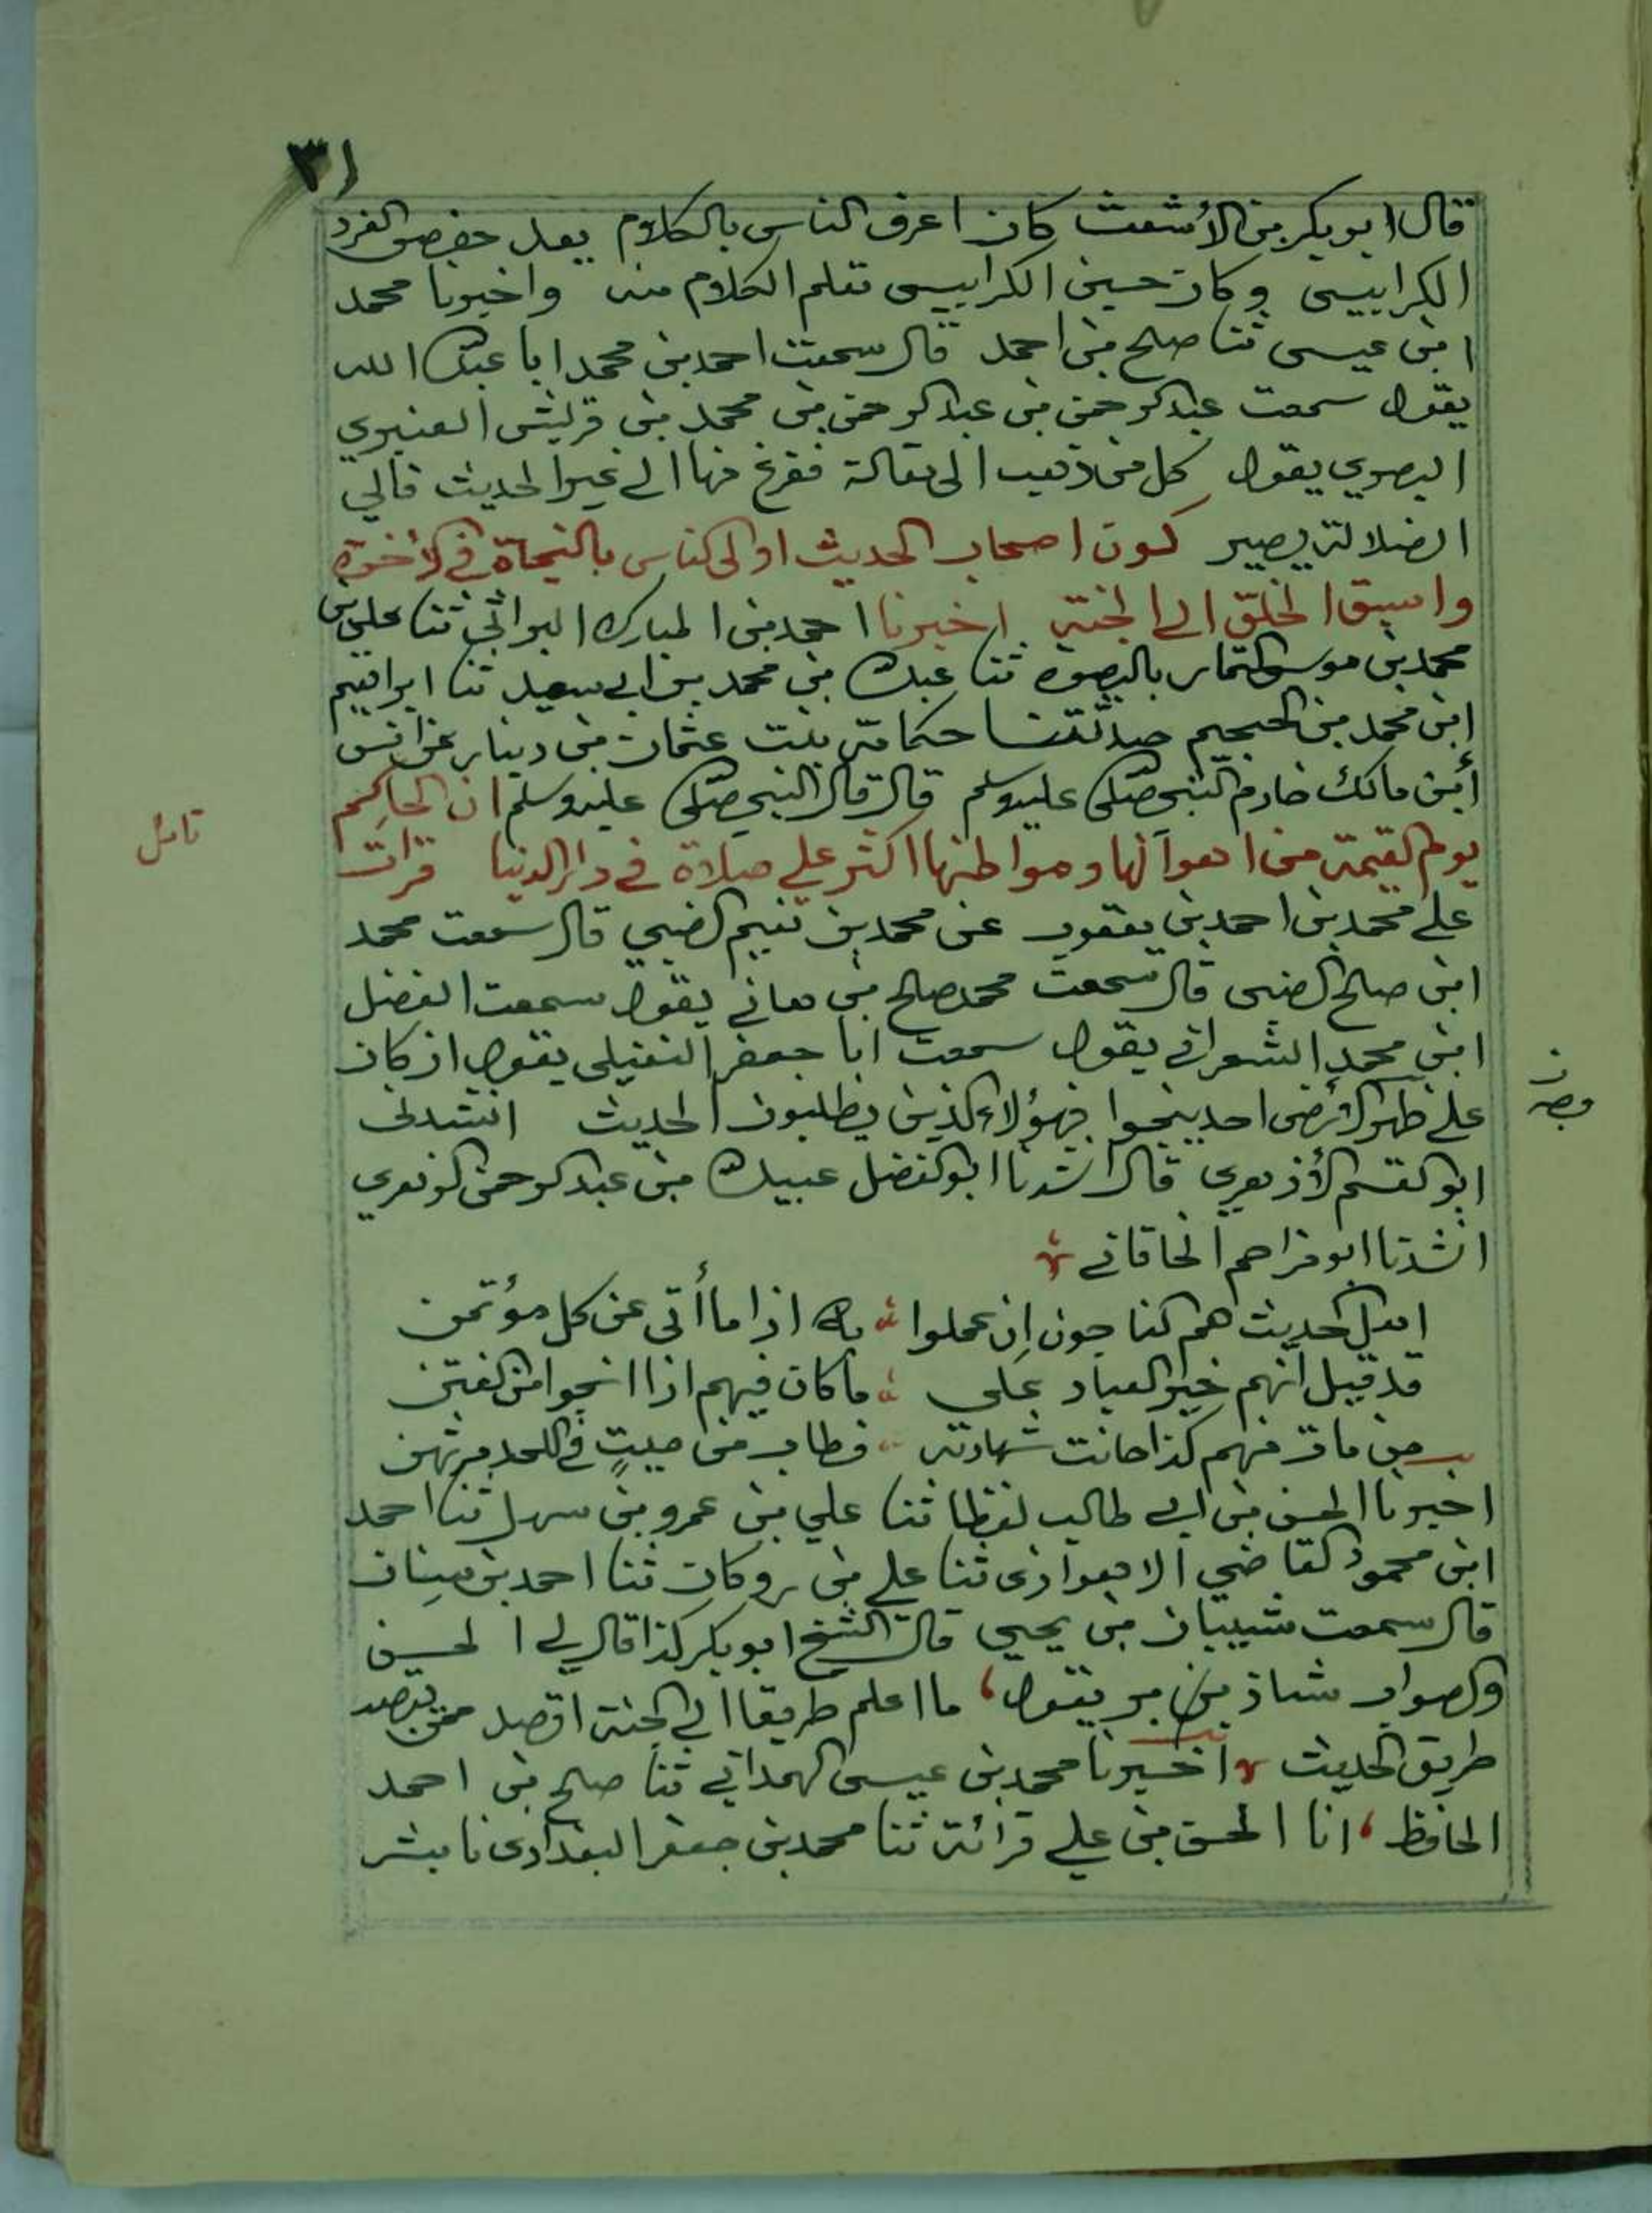 ٣١
قال ابو بكر بن الأشعث كان اعرف الناس بالكلام بعد حفص الفرد
الكرابيسي وكان حسين الكرابيسي تعلم الكلام منه واخبرنا محمد
ابن عيسى ثنا صلح بن احمد قال سمعت احمد بن محمد ابا عبد الله
يقول سمعت عبد الرحمن بن عبد الرحمن بن محمد بن قريش العنبري
البصري يقول كل من ذهب الى مقالة ففزع منها الى غير الحديث فالي
الضلالة يصير كون اصحاب الحديث اولى الناس بالنجاة في الأخرة
واسبق الخلق الى الجنة اخبرنا احمد بن المبارك البراثي ثنا علي بن
محمد بن موسى التمار بالبصرة ثنا عبد الله بن محمد بن ابي سعيد ثنا ابراهيم
ابن محمد بن الحجيم حدثتنا حكامة بنت عثمان بن دينار عن انس
أبن مالك خادم النبي صلى عليه وسلم قال قال النبي صلى عليه وسلم ان انجاكم
تامل
يوم القيمة من اهوالها ومواطنها اكثر علي صلاة في دار الدنيا قرات
على محمد بن احمد بن يعقوب عن محمد بن نعيم الضبي قال سمعت محمد
ابن صالح الضبي قال سمعت محمد صالح بن هاني يقول سمعت الفضل
ابن محمد الشعراني يقول سمعت ابا جعفر النفيلي يقول ان كان
على ظهر الأرض احد ينجوا فهؤلاء الذين يطلبون الحديث انشدني
ابو القسم الأزهري قال انشدنا ابو الفضل عبيد الله بن عبد الرحمن الزهري
انشدنا ابو مزاحم الخاقاني
اهل الحديث هم الناجون إن عملوا به اذا ما أتى عن كل مؤتمن
قد قيل انهم خير العباد علي ما كان فيهم اذا انجوا من الفتن
من مات منهم كذا حانت شهادته فطاب من ميتٍ في اللحد مرتهن
اخبرنا الحسن بن ابي طالب لفظا ثنا علي بن عمرو بن سهل ثنا احمد
ابن محمود القاضي الاهوازي ثنا علي بن روكان ثنا احمد بن سنان
قال سمعت شيبان بن يحيي قال الشيخ ابو بكر كذا قال لي الحسن
والصواب شاذ بن يقول ما اعلم طريقا الى الجنة اقصد ممن يقصد
طريق الحديث اخبرنا محمد بن عيسى الهمداني ثنا صلح بن احمد
الحافظ انا الحسن بن علي قرائة ثنا محمد بن جعفر البغدادي نا بشر